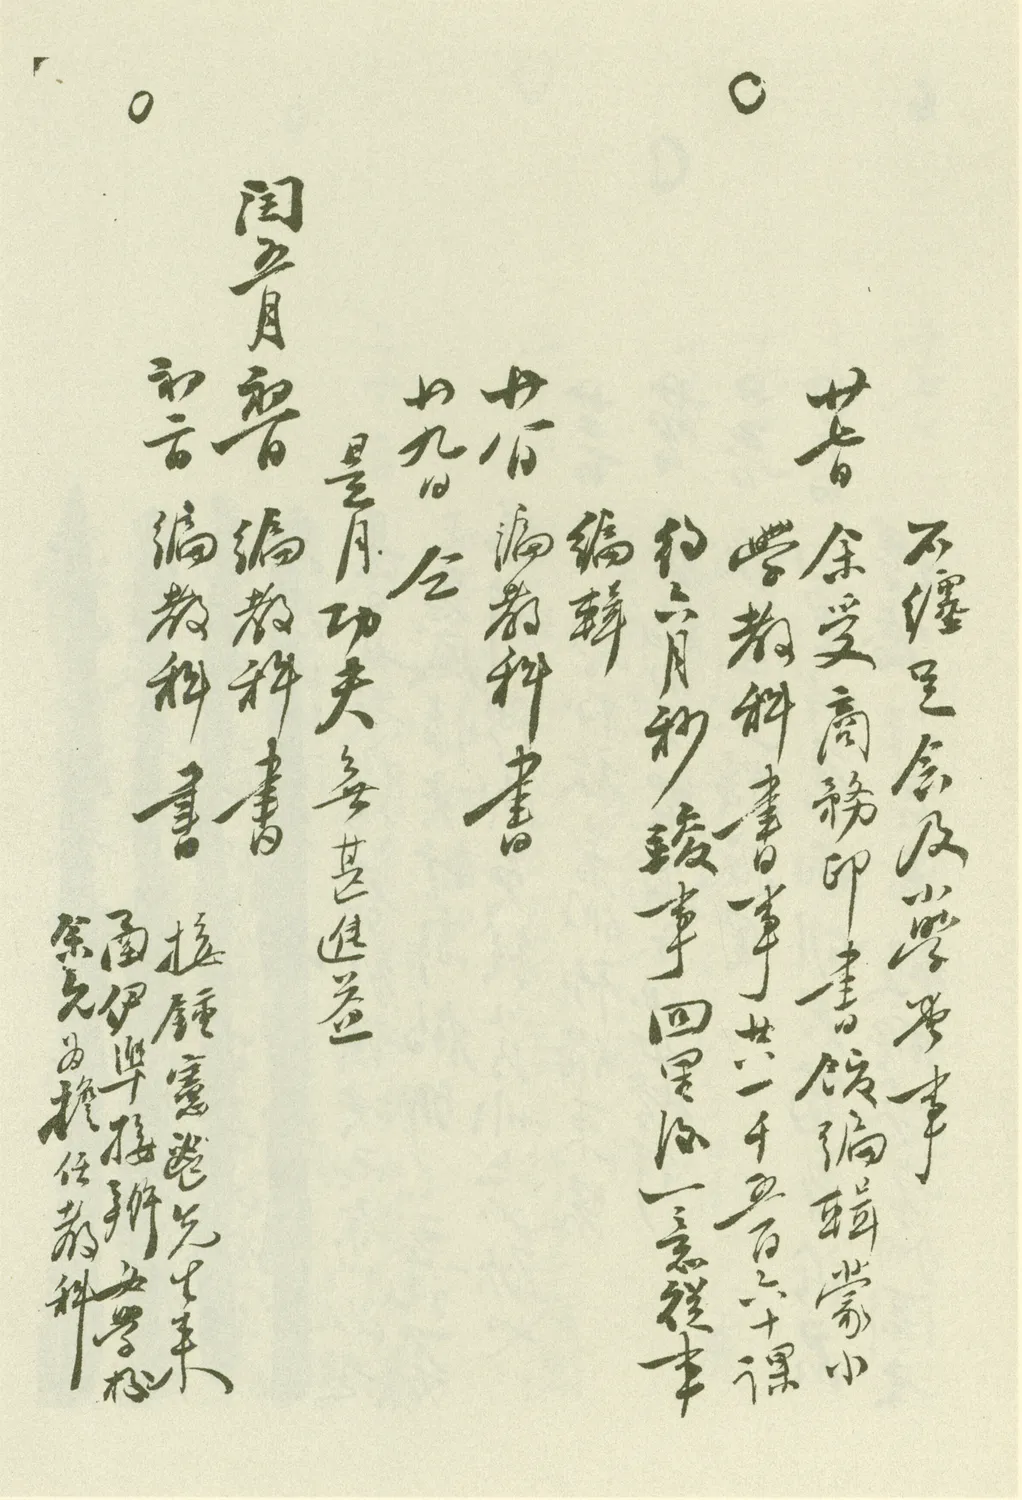 不纏足會及小學堂事
廿七日 余受商務印書館編輯蒙小
學教科書事共一千五百六十課
約六月秒竣事四星後一意從事
編輯
廿八日 編教科書
廿九日 仝
是月功夫無甚進益
閏五月 初一日 編教科書
初二日 編教科書
接鍾憲鬯先生來
函伊準接辦女學校
余允為擔任教科